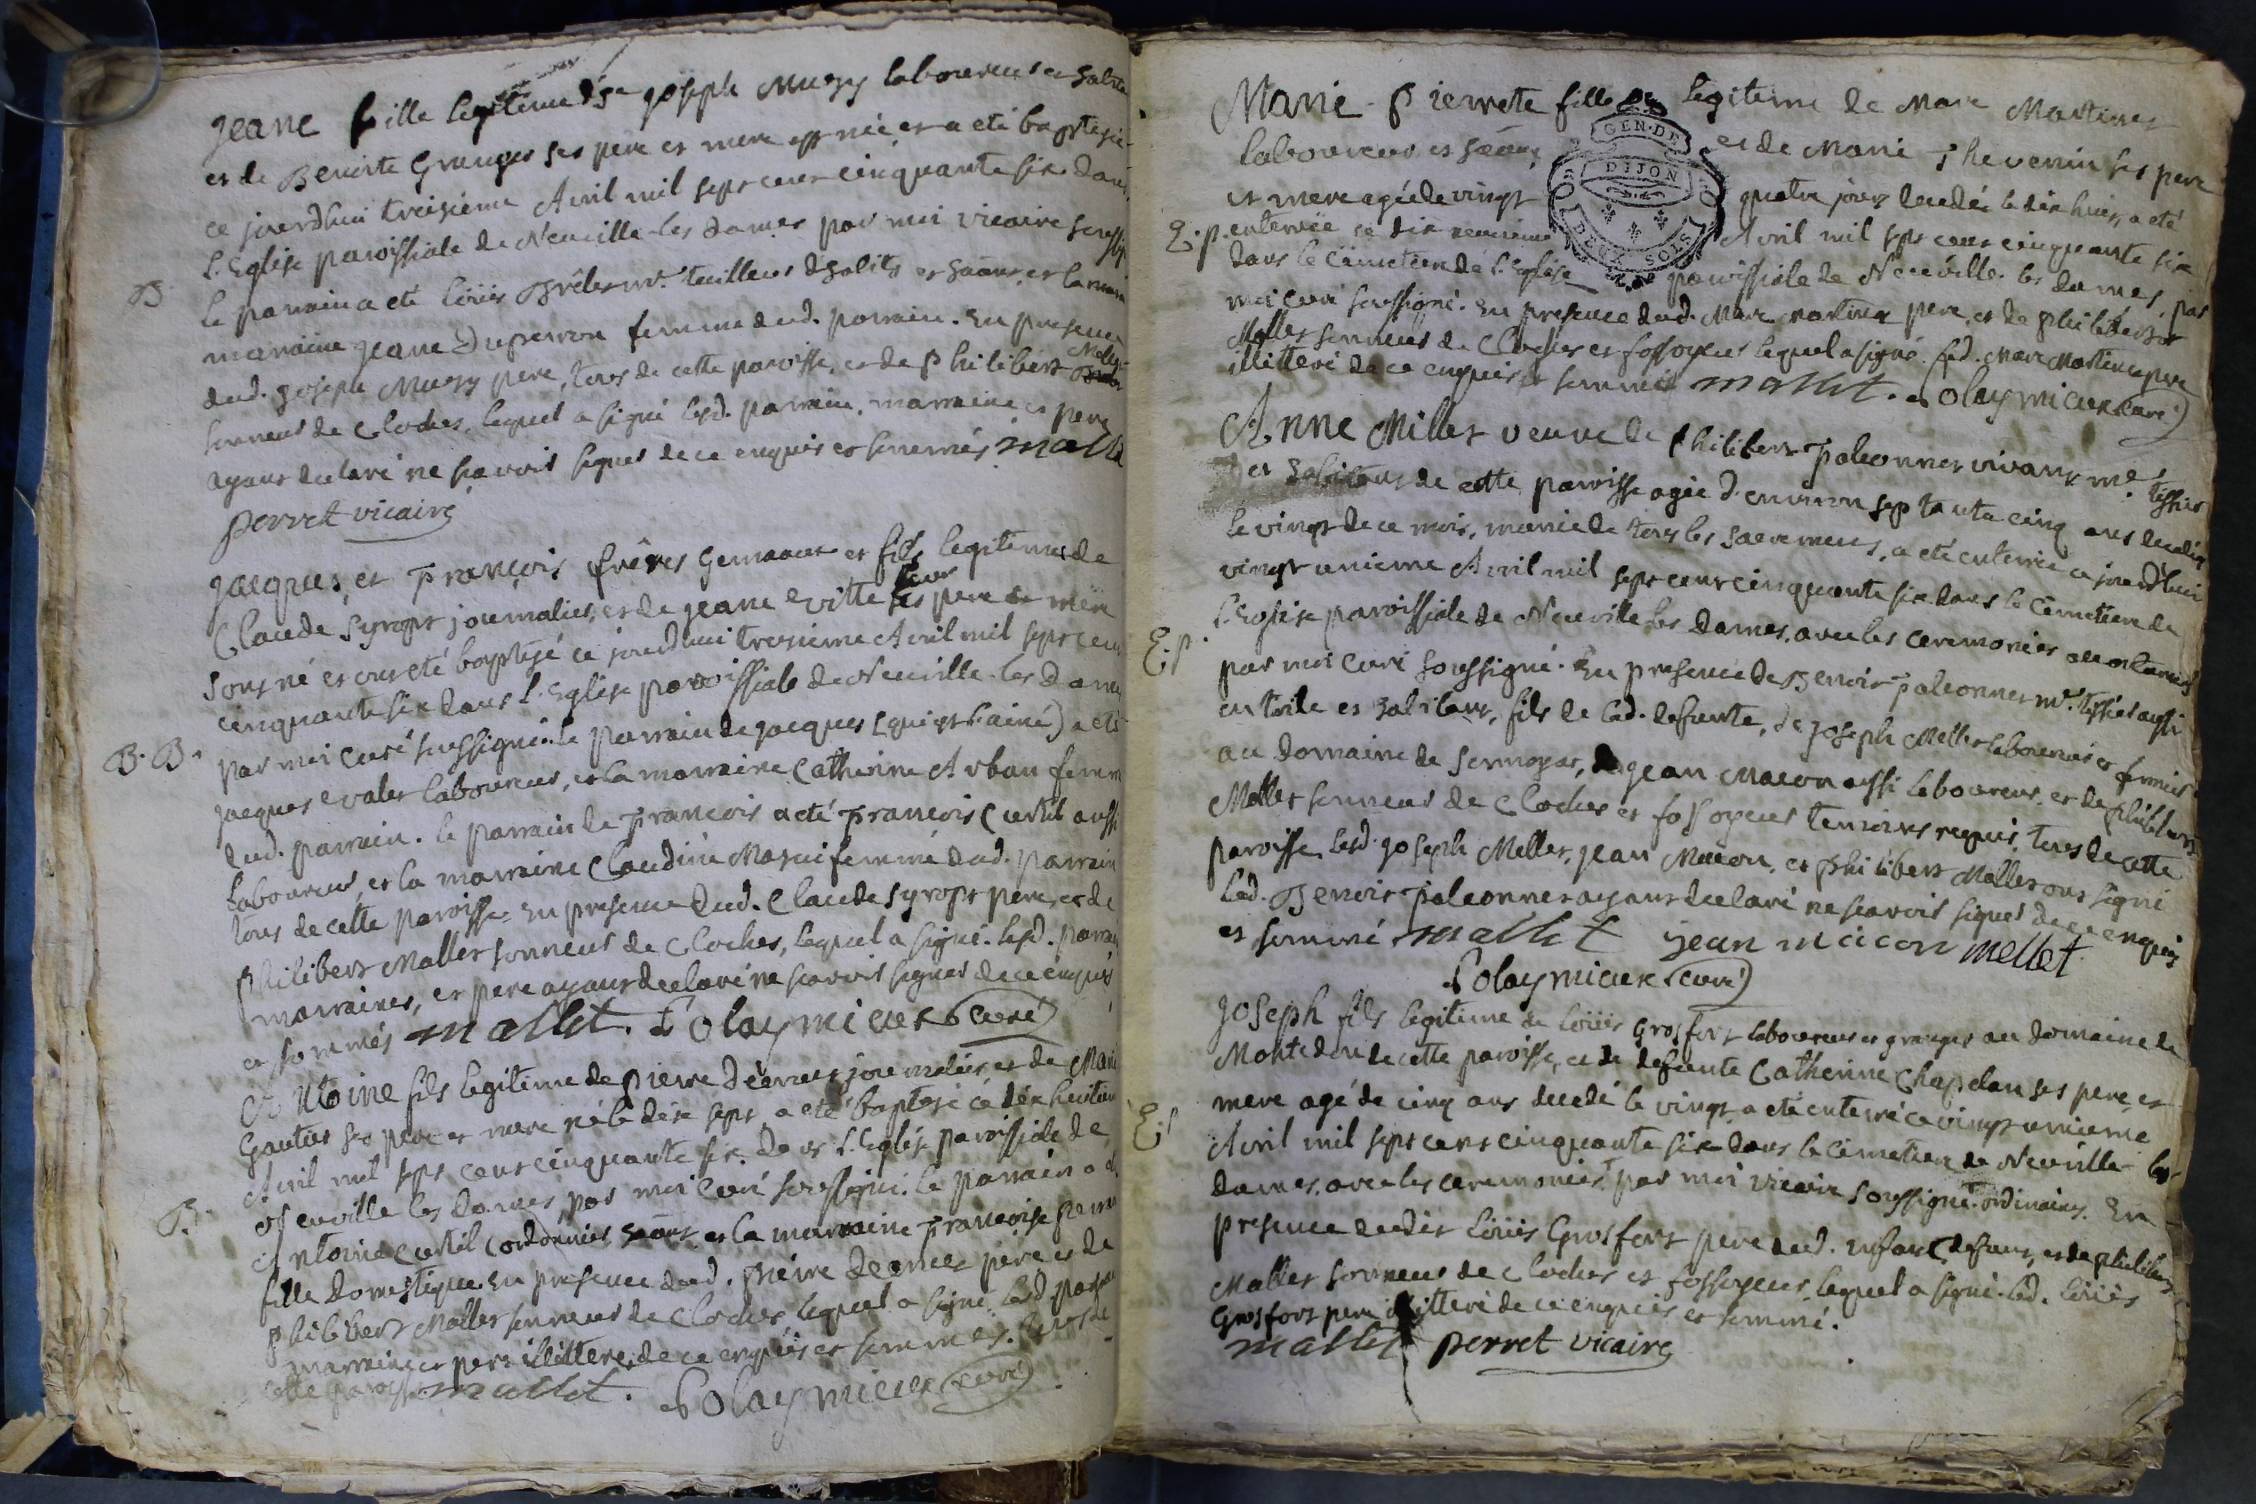 Jeane fille legitime de Joseph Mugy laboureur et habita
et de Benoite Granger ses pere et mere est née et a eté baptisée
ce jourdhui treisieme Avril mil sept cent cinquante six dans
l'Eglise paroissiale de Neuville les dames par moi vicaire soussig
B.
le parrain a eté loüis mr. tailleur d'habits et la
marraine Jeane Duperron femme dud. parrain. En presence
dud. Joseph Mugy pere, tous de cette paroisse, et de Philibert
sonneur de Cloches, lequel a signé lesd. parrain, marraine et pere
ayant declaré ne sçavoir signer de ce enquis et sommés mallet
perret vicaire
Jacques et François freres Gemeaux et fils legitimes de
Claude Syropt journalier, et de Jeane evitte leur pere et mere
sont né et ont eté baptisé ce jourdhui tresieme Avril mil sept cent
cinquante six dans l'Eglise paroissiale de Neuville les Dames
B. B.
par moi Curé soussigné. le parrain de Jacques (qui est l'ainé) a eté
Jacques evalet laboureur, et la marraine Catherine Arban femme
dud. parrain. le parrain de François a eté François Curtil aussi
laboureur, et la marraine Claudine femme dud. parrain
tous de cette paroisse. En presence dud. Claude Syropt pere, et de
Philibert Mallet sonneur de Cloches, lequel a signé. lesd. parrain
marraines, et pere ayant declaré ne scavoir signer de ce enquis
et sommés mallet. Polaymieux curé
Antoine fils legitime de Pierre journalier et de Marie
Gautier ses pere et mere né le dix sept a eté baptisé ce dix huitieme
Avril mil sept cent cinquante six dans l'Eglise paroissiale de
B.
Neuville les Dames par moi Curé soussigné. le parrain a eté
Antoine Curtil Cordonnier et la marraine Françoise
fille domestique. En presence dud. Pierre pere et de
Philibert Mallet sonneur de Cloches lequel a signé. lesd. parrain
marraine et pere illitteré de ce enquis et sommés. tous de
cette paroisse mallet. Polaymieux curé
Marie Pierrete fille legitime de Marc Martinet
laboureur et et de Marie Thevenin ses pere
GEN. DE
DIJON
DEUX SOLS
et mere agée de vingt quatre jours decedée le dix huit, a eté
E. p. enterrée ce dix neuvieme Avril mil sept cent cinquante six
dans le Cimetiere de l'Eglise paroissiale de Neuville les dames, par
moi Curé soussigné. En presence dud. Marc Martinet pere, et de philibert
Mallet sonneur de Cloches et fossoyeur lequel a signé. led. Marc Martinet pere
illitteré de ce enquis et sommé mallet. Polaymieux curé
Anne Millet veuve de Philibert paleonner vivant me. tissier
et habitant de cette paroisse agée d'environ septante cinq ans decedée
le vingt de ce mois, munie de tous les sacremens, a eté enterrée ce jourdhui
vingt unieme Avril mil sept cent cinquante six dans le Cimetiere de
l'Eglise paroissiale de Neuville les Dames, avec les ceremonies
E. p.
par moi Curé soussigné. En presence de Benoit paleonner mr. tissier
en toile et habitant, fils de lad. defunte, de Joseph Mellet laboureur et fermier
au domaine de de Jean Macon aussi laboureur, et de philibert
Mallet sonneur de Cloches et fossoyeur temoins requis, tous de cette
paroisse. lesd. Joseph Mellet, Jean Macon, et Philibert Mallet ont signé
led. Benoit paleonner ayant declaré ne scavoir signer de ce enquis
et sommé. mallet jean macon mellet
Polaymieux curé
Joseph fils legitime de loüis Grosfort laboureur et granger au domaine de
Montedon de cette paroisse, et de defunte Catherine Chapelan ses pere et
mere agé de cinq ans decedé le vingt a eté enterré ce vingt unieme
E. p.
Avril mil sept cent cinquante six dans le Cimetiere de Neuville les
dames, avec les ceremonies par moi vicaire soussigné ordinaires. En
presence dudit loüis Grosfort pere dud. enfant defunt, et de philibert
Mallet sonneur de Cloches et fossoyeur, lequel a signé. led. loüis
Grosfort pere illitteré de ce enquis et sommé.
mallet perret vicaire